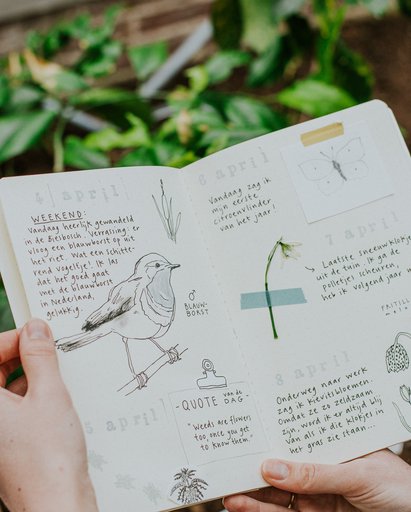 4 april
WEEKEND:
Vandaag heerlijk gewandeld
in de Biesbosch. Verrassing: er
vloog een blauwborst op uit
het riet. Wat een schitte-
rend vogeltje! Ik las
dat het goed gaat
met de blauwborst
in Nederland,
gelukkig.
♂ BLAUW-
BORST
5 april
QUOTE van de DAG
"Weeds are flowers
too, once you get
to know them."
6 april
Vandaag zag ik
mijn eerste
citroenvlinder
van het jaar.
7 april
Laatste sneeuwklokje
uit de tuin. Ik ga de
polletjes scheuren,
heb ik volgend jaar
8 april
Onderweg naar werk
zag ik Kievitsbloemen.
Omdat ze zo zeldzaam
zijn, word ik er altijd blij
van als ik die klokjes in
het gras zie staan...